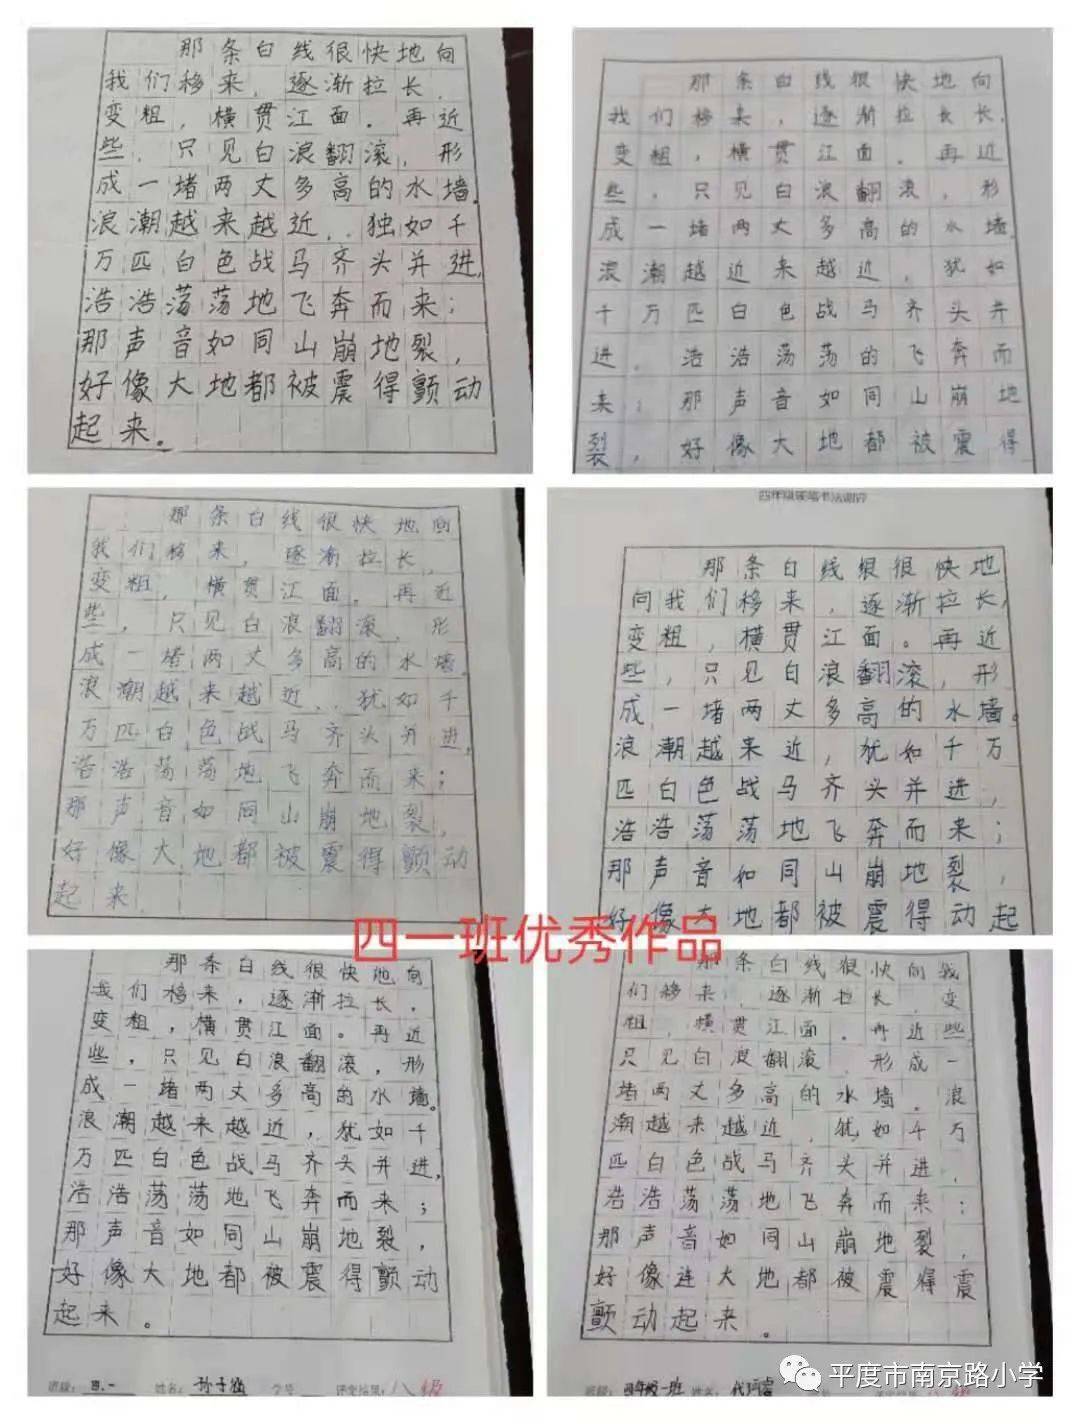 那条白线很快地向
我们移来，逐渐拉长，
变粗，横贯江面。再近
些，只见白浪翻滚，形
成一堵两丈多高的水墙。
浪潮越来越近，独如千
万匹白色战马齐头并进，
浩浩荡荡地飞奔而来；
那声音如同山崩地裂，
好像大地都被震得颤动
起来。
那条白线很快地向
我们移来，逐渐拉长长，
变粗，横贯江面。再近
些，只见白浪翻滚，形
成一堵两丈多高的水墙。
浪潮越近来越近，犹如
千万匹白色战马齐头并
进，浩浩荡荡的飞奔而
来；那声音如同山崩地
裂，好像大地都被震得
那条白线很快地向
我们移来，逐渐拉长，
变粗，横贯江面。再近
些，只见白浪翻滚，形
成一堵两丈多高的水墙。
浪潮越来越近，犹如千
万匹白色战马齐头并进，
浩浩荡荡地飞奔而来；
那声音如同山崩地裂，
好像大地都被震得颤动
起来。
四年级硬笔书法测评
那条白线很很快地
向我们移来，逐渐拉长，
变粗，横贯江面。再近
些，只见白浪翻滚，形
成一堵两丈多高的水墙。
浪潮越来近，犹如千万
匹白色战马齐头并进，
浩浩荡荡地飞奔而来；
那声音如同山崩地裂，
好像大地都被震得动起
四一班优秀作品
那条白线很快地向
我们移来，逐渐拉长，
变粗，横贯江面。再近
些，只见白浪翻滚，形
成一堵两丈多高的水墙。
浪潮越来越近，犹如千
万匹白色战马齐头并进，
浩浩荡荡地飞奔而来；
那声音如同山崩地裂，
好像大地都被震得颤动
起来。
班级：四.一 姓名： 学号 评定结果：八级
那条白线很快向我
们移来，逐渐拉长，变
粗，横贯江面。再近些，
只见白浪翻滚，形成一
堵两丈多高的水墙。浪
潮越来越近，犹如千万
匹白色战马齐头并进，
浩浩荡荡地飞奔而来；
那声音如同山崩地裂，
好像连大地都被震得震
颤动起来。
班级：四年级一班 姓名：
平度市南京路小学